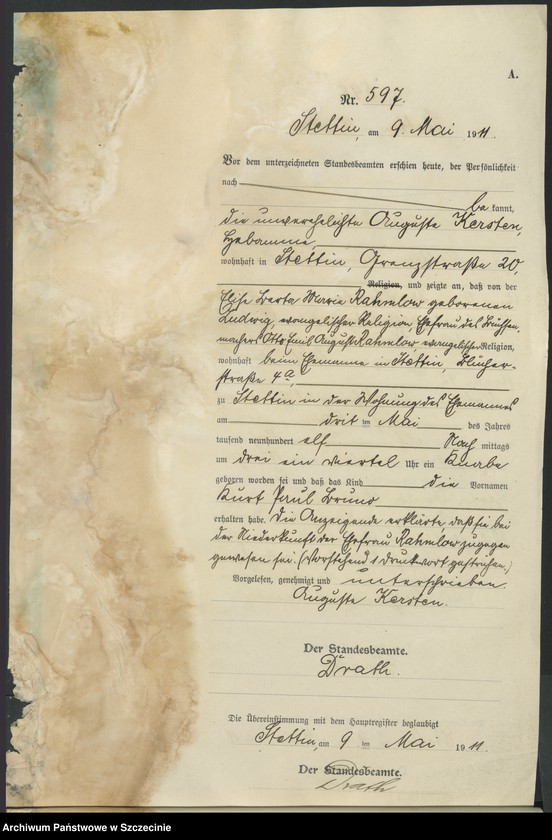 A.
Nr. 597.
Stettin, am 9. Mai 1911.
Vor dem unterzeichneten Standesbeamten erschien heute, der Persönlichkeit
nach be kannt,
die unverehelichte Auguste Kersten,
Hebamme,
wohnhaft in Stettin, Grenzstraße 20,
Religion, und zeigte an, daß von der
Elise Berta Marie Rahmlow geborenen
Ludwig, evangelischer Religion, Ehefrau des Büchsen-
machers Otto Emil August Rahmlow evangelischer Religion,
wohnhaft beim Ehemanne in Stettin, Blücher-
straße 4a,
zu Stettin in der Wohnung des Ehemannes
am drit im Mai des Jahres
tausend neunhundert elf Nach mittags
um drei ein viertel Uhr ein Knabe
geboren worden sei und daß das Kind die Vornamen
Kurt Paul Bruno
erhalten habe. Die Anzeigende erklärte, daß sie bei
der Niederkunft der Ehefrau Rahmlow zugegen
gewesen sei. (Vorstehend 1 Druckwort gestrichen.)
Vorgelesen, genehmigt und unterschrieben.
Auguste Kersten.
Der Standesbeamte.
Drath.
Die Übereinstimmung mit dem Hauptregister beglaubigt
Stettin, am 9 ten Mai 1911.
Der Standesbeamte.
Drath
Archiwum Państwowe w Szczecinie